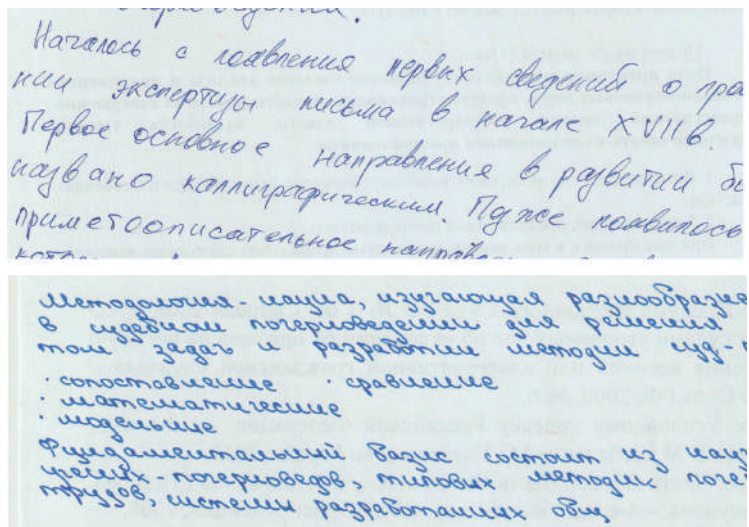 Началось с появления первых сведений о пра
нии экспертизы письма в начале XVII в.
Первое основное направления в развитии бы
названо каллиграфическим. Позже появилось
приметоописательное направ
Методология - наука, изучающая разнообразие
в судебном почерковедении для решения
том задач разработки методик суд.
· сопоставление · сравнение
· математические
· модельные
Фундаментальный базис состоит из науч
ученых-почерковедов, типовых методик почер
трудов, системы разработанных общ